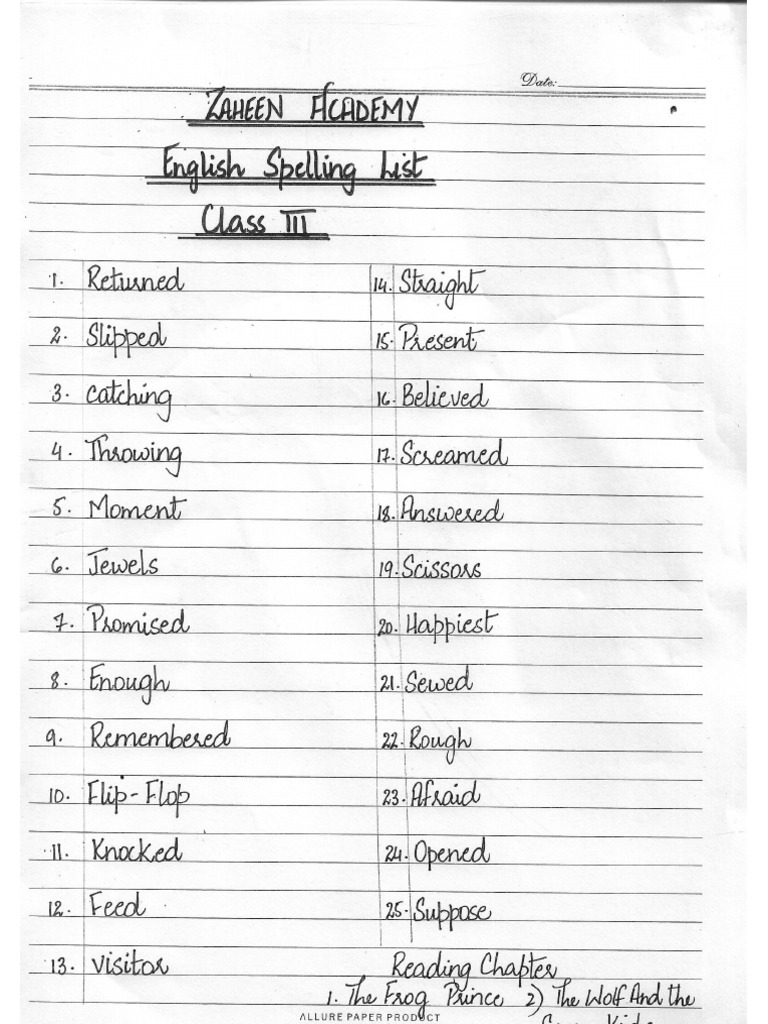 Date:
ZAHEEN ACADEMY
English Spelling List
Class III
1. Returned
2. Slipped
3. catching
4. Throwing
5. Moment
6. Jewels
7. Promised
8. Enough
9. Remembered
10. Flip-Flop
11. Knocked
12. Feed
13. visitor
14. Straight
15. Present
16. Believed
17. Screamed
18. Answered
19. Scissors
20. Happiest
21. Sewed
22. Rough
23. Afraid
24. Opened
25. Suppose
Reading Chapter
1. The Frog Prince 2) The Wolf And the
ALLURE PAPER PRODUCT